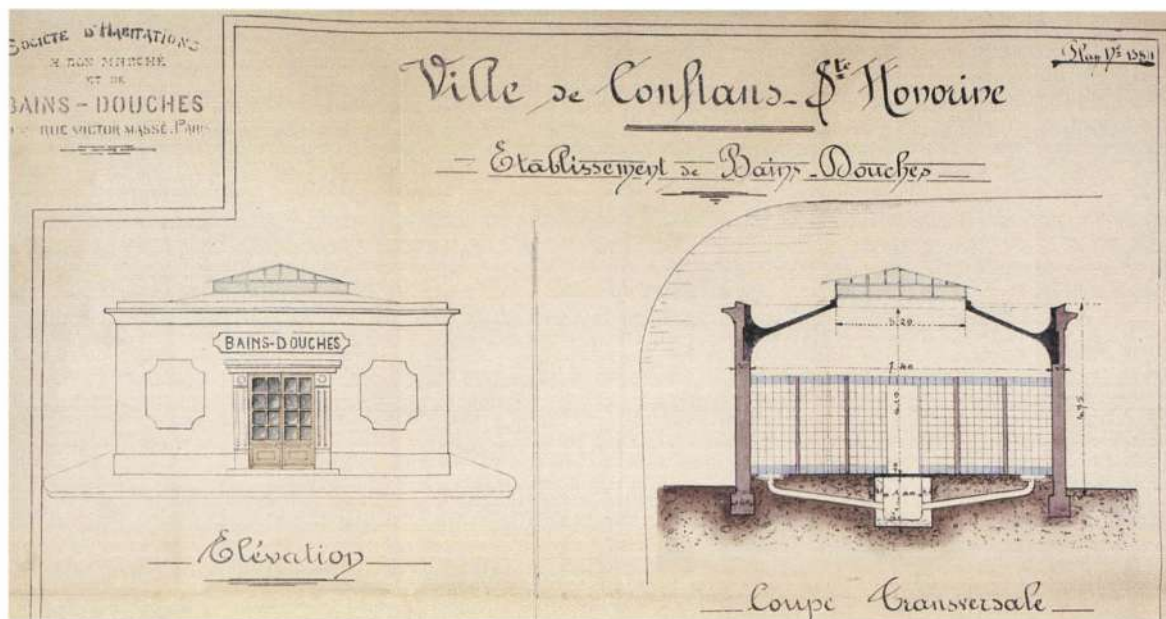 SOCIÉTÉ D'HABITATIONS
A BON MARCHÉ
ET DE
BAINS-DOUCHES
RUE VICTOR MASSÉ. PARIS
Plan N°
Ville de Conflans-Ste Honorine
Etablissement de Bains-Douches
BAINS-DOUCHES
3.20
7.40
4.95
1.00
Elévation
Coupe Transversale